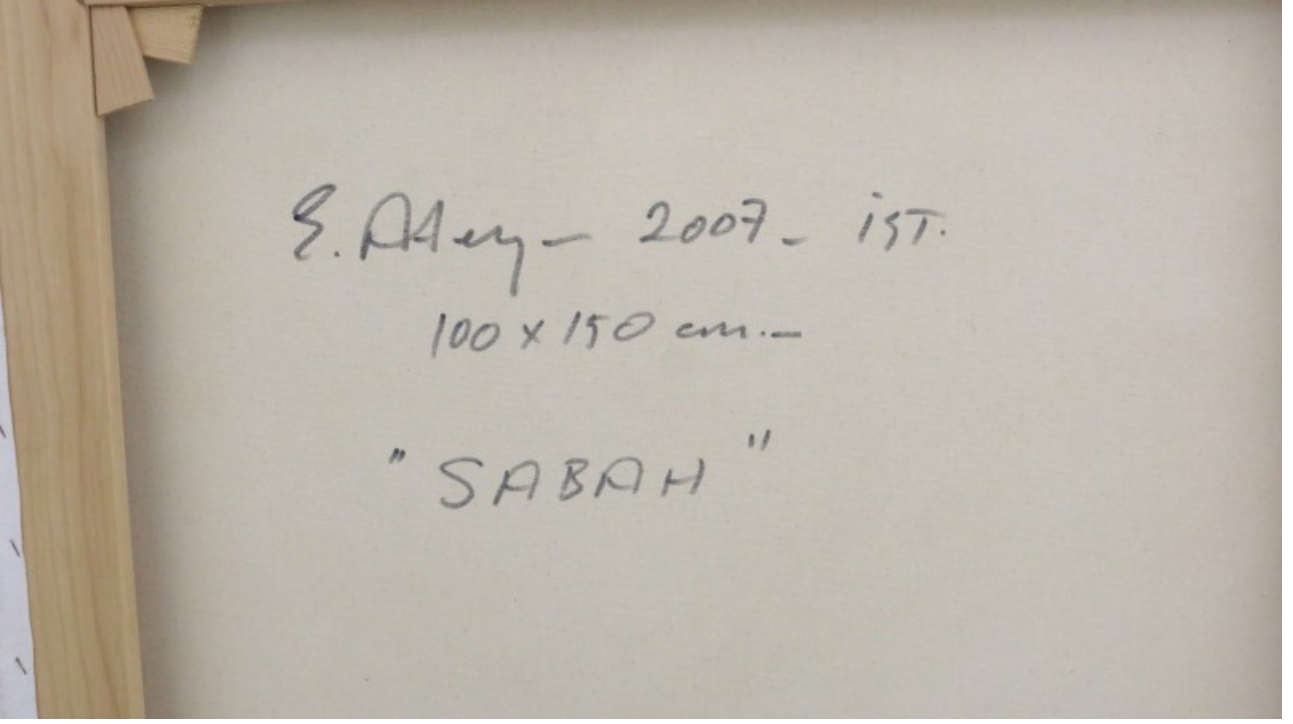 E. – 2007 – İST.
100 x 150 cm. –
" SABAH "